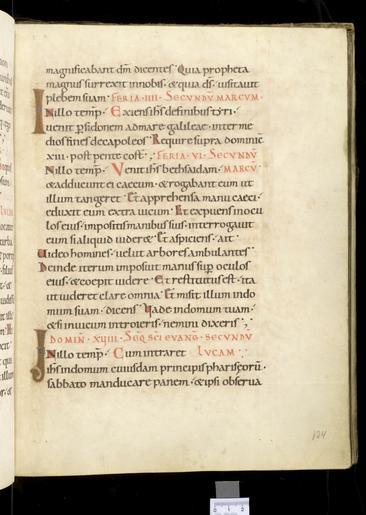 magnificabant dm̄ dicentes. Quia propheta
magnus surrexit innobis. & quia ds̄ uisitauit
plebem suam. FERIA · IIII · SECUNDV̄ MARCUM.
INillo temp̄. Exiens ih̄s definibus tyri.
uenit p̱ sidonem admare galileae inter me
dios fines decapoleos. Require supra dominic̄
XIII · post pentecost̄. FERIA · VI · SECUNDV̄
INillo temp̄. Venit ih̄s bethsaidam. MARCV̄
& adducunt ei caecum. & rogabant eum ut
illum tangeret. Et apprehensa manu caeci.
eduxit eum extra uicum. Et expuens inocu
los eius. impositis manibus suis. interrogauit
eum si aliquid uider&. Et aspiciens. ait.
Uideo homines. uelut arbores ambulantes.
Deinde iterum imposuit manus sup̱ oculos
eius. & coepit uidere. Et restitutus est. ita
ut uideret clare omnia. Et misit illum indo
mum suam. dicens. Vade indomum tuam.
& si inuicum introieris. nemini dixeris.
DOMIN · XVIIII · SEQ̄ SC̄I EVANḠ · SECUNDV̄
INillo temp̄. Cum intraret LUCAM.
ih̄s indomum cuiusdam principis pharisęorū.
sabbato manducare panem. & ipsi obserua
124